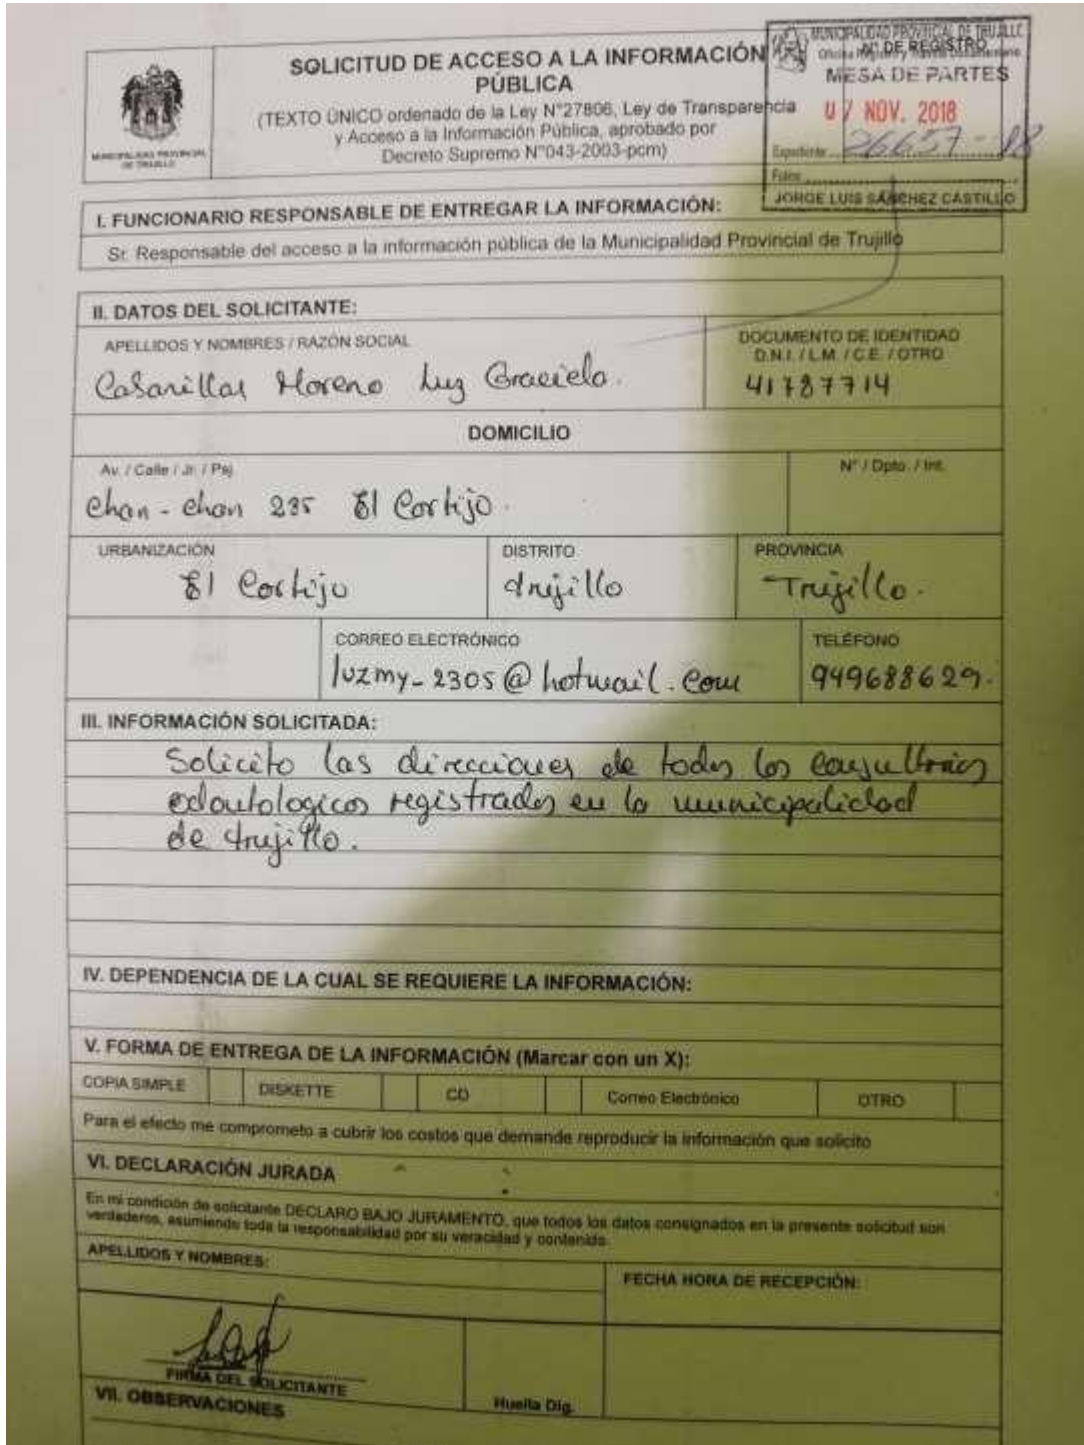 MUNICIPALIDAD PROVINCIAL
DE TRUJILLO
SOLICITUD DE ACCESO A LA INFORMACIÓN
PÚBLICA
(TEXTO ÚNICO ordenado de la Ley N°27806, Ley de Transparencia
y Acceso a la Información Pública, aprobado por
Decreto Supremo N°043-2003-pcm)
MUNICIPALIDAD PROVINCIAL DE TRUJILLO
N° DE REGISTRO
MESA DE PARTES
07 NOV. 2018
Expediente 26657-18
Folios
JORGE LUIS SANCHEZ CASTILLO
I. FUNCIONARIO RESPONSABLE DE ENTREGAR LA INFORMACIÓN:
Sr. Responsable del acceso a la información pública de la Municipalidad Provincial de Trujillo
II. DATOS DEL SOLICITANTE:
APELLIDOS Y NOMBRES / RAZÓN SOCIAL
DOCUMENTO DE IDENTIDAD
D.N.I. / L.M. / C.E. / OTRO
Casanillas Moreno Luz Graciela.
41787714
DOMICILIO
Av. / Calle / Jr. / Psj.
N° / Dpto. / Int.
Chan - chan 235 El Cortijo.
URBANIZACIÓN
DISTRITO
PROVINCIA
El Cortijo
trujillo
Trujillo.
CORREO ELECTRÓNICO
TELÉFONO
luzmy_2305@hotmail.com
949688629.
III. INFORMACIÓN SOLICITADA:
Solicito las direcciones de todos los consultorios
odontologicos registrados en la municipalidad
de trujillo.
IV. DEPENDENCIA DE LA CUAL SE REQUIERE LA INFORMACIÓN:
V. FORMA DE ENTREGA DE LA INFORMACIÓN (Marcar con un X):
COPIA SIMPLE
DISKETTE
CD
Correo Electrónico
OTRO
Para el efecto me comprometo a cubrir los costos que demande reproducir la información que solicito
VI. DECLARACIÓN JURADA
En mi condición de solicitante DECLARO BAJO JURAMENTO, que todos los datos consignados en la presente solicitud son
verdaderos, asumiendo toda la responsabilidad por su veracidad y contenido.
APELLIDOS Y NOMBRES:
FECHA HORA DE RECEPCIÓN:
FIRMA DEL SOLICITANTE
Huella Dig.
VII. OBSERVACIONES